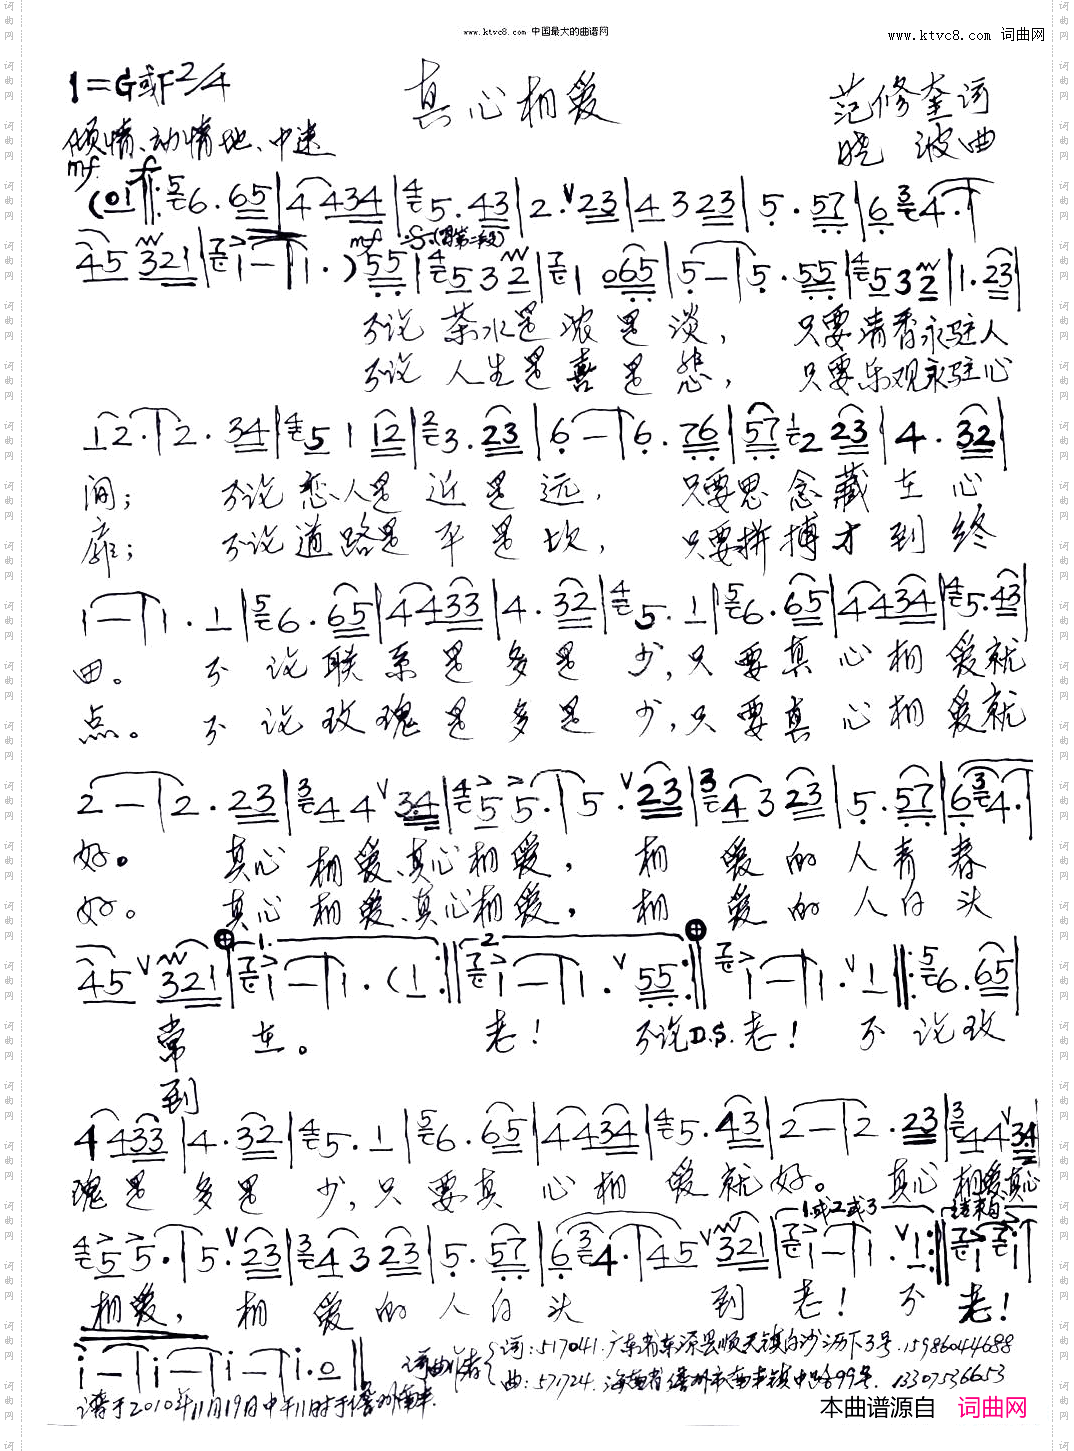 www.ktvc8.com 中国最大的曲谱网
www.ktvc8.com 词曲网
1=G或F 2/4
真心相爱
范修奎词
倾情、动情地、中速
晓波曲
mf f
(01‖: 56. 65 | 4 434 | 45. 43 | 2. ∨23 | 4 3 23 | 5. 57 | 6 34. |
45 321 | 71 — | 1. ) 55 | 45 3 2 | 71 065 | 5 — | 5. 55 | 45 3 2 | 1. 23 |
mf f(唱第二段)
不论 茶水是浓是淡, 只要清香永驻人
不论 人生是喜是悲, 只要乐观永驻心
1 2. | 2. 34 | 45 1 12 | 23. 23 | 6 — | 6. 76 | 57 12 23 | 4. 32 |
间; 不论恋人是近是远, 只要思念藏在心
扉; 不论道路是平是坎, 只要拼搏才到终
1 — | 1. 1 | 56. 65 | 4 433 | 4. 32 | 45. 1 | 56. 65 | 4 434 | 45. 43 |
田。 不论联系是多是少,只要真心相爱就
点。 不论玫瑰是多是少,只要真心相爱就
2 — | 2. 23 | 34 4 ∨34 | 45 5. | 5. ∨23 | 34 3 23 | 5. 57 | 6 34. |
好。 真心相爱、真心相爱, 相爱的人青春
好。 真心相爱、真心相爱, 相爱的人白头
45 ∨321 | 1. 71 — | 1. (1 :‖ 2. 71 — | 1. ∨55 :‖ 71 — | 1. ∨1 ‖: 56. 65 |
常在。 老! 不论D.S.老! 不论玫
到
4 433 | 4. 32 | 45. 1 | 56. 65 | 4 434 | 45. 43 | 2 — | 2. 23 | 34 4 ∨34 |
瑰是多是少,只要真心相爱就好。 真心相爱真心
1.或2或3 结束句
45 5. | 5. ∨23 | 34 3 23 | 5. 57 | 6 34. | 45 ∨321 | 71 — | 1. ∨1 :‖ 71 71 |
相爱, 相爱的人白头到老! 不老!
i — | i — | i — | i. 0 ‖
词曲作者
词:517041.广东省东源县顺天镇白沙沥下3号.15986044688
曲:571724.海南省儋州市南丰镇中路99号.13307536653
谱于2010年11月19日中午11时于儋州南丰.
本曲谱源自 词曲网